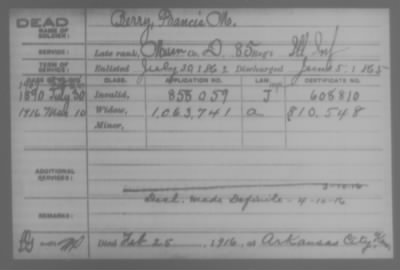 DEAD
NAME OF SOLDIER:
Berry, Francis M.
SERVICE:
Late rank, Co. D, 85 Reg't Ill Inf
TERM OF SERVICE:
Enlisted July 1862 Discharged June 5, 1865
CLASS. APPLICATION NO. LAW. CERTIFICATE NO.
1890 July 30 Invalid, 858059 J 608810
1916 Mar 10 Widow, 1,063,741 a 810,548
Minor,
ADDITIONAL SERVICES:
3-10-16
Decl. made Definite - 4-10-16
REMARKS:
Died Feb 25, 1916, at Arkansas City, Kans